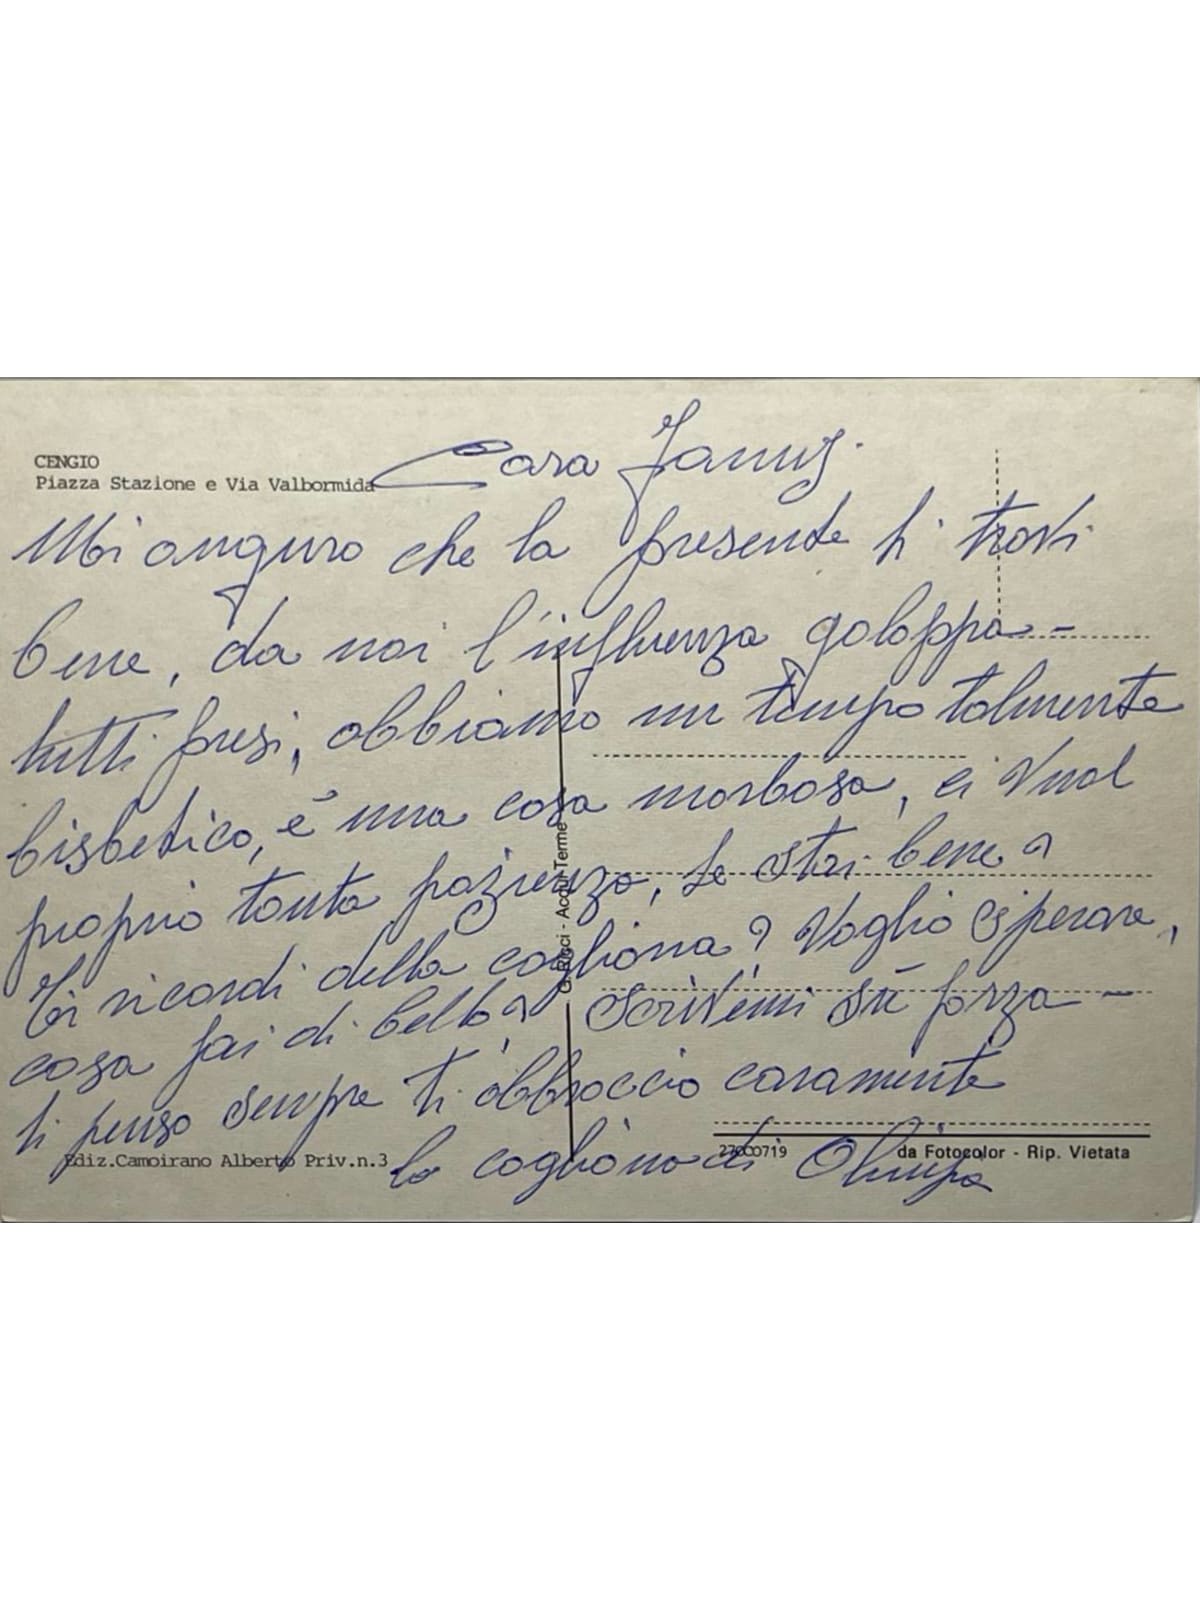 CENGIO
Piazza Stazione e Via Valbormida
Cara
Mi auguro che la presente ti trovi
bene, da noi l'influenza galoppa -
tutti presi, abbiamo un tempo talmente
bisbetico, è una cosa morbosa, ci vuol
proprio tanta pazienza, te stai bene?
Ti ricordi della cogliona? Voglio sperare,
cosa fai di bello? scrivimi su forza -
ti penso sempre ti abbraccio caramente
la cogliona di Olimpia
G. Ricci - Acqui Terme
Ediz.Camoirano Alberto Priv.n.3
da Fotocolor - Rip. Vietata